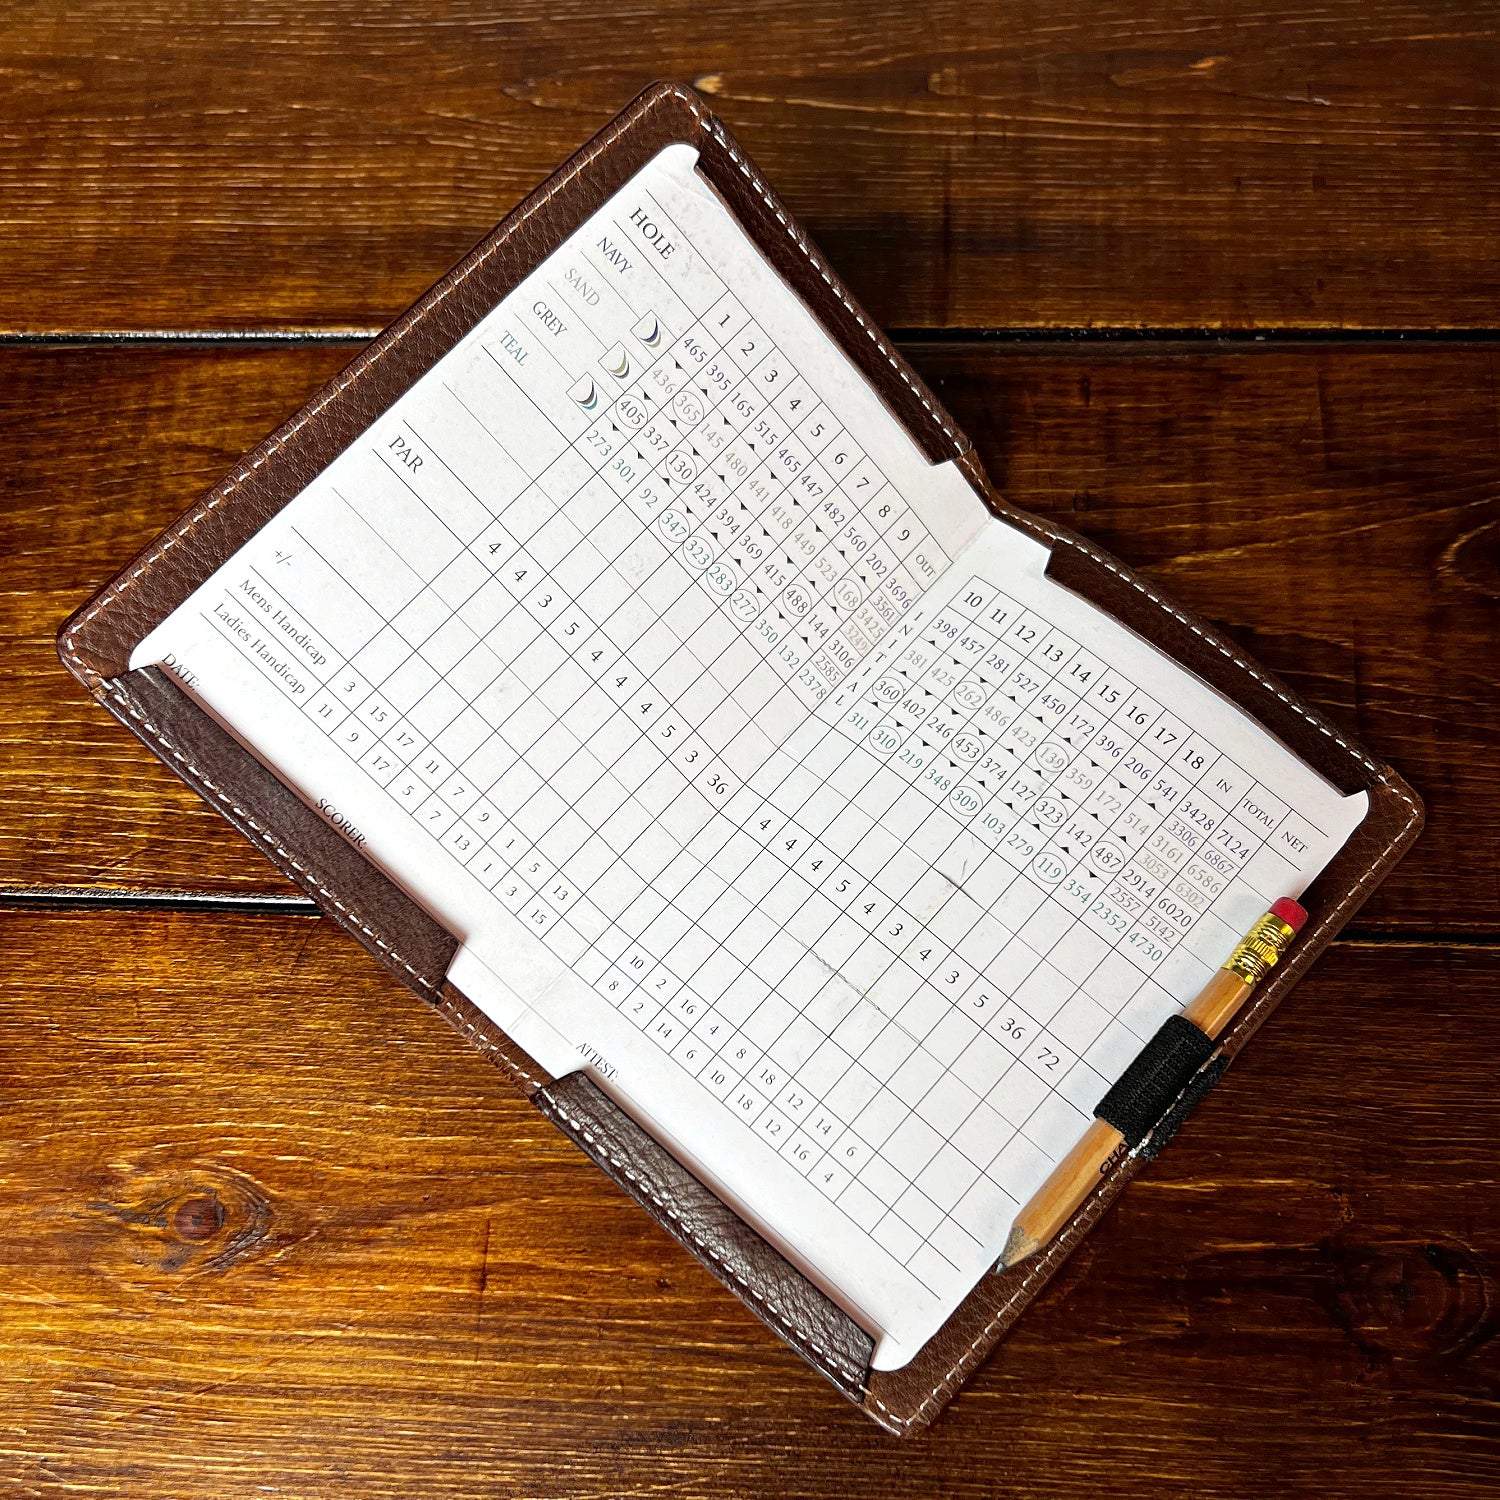 HOLE 1 2 3 4 5 6 7 8 9 OUT INITIAL 10 11 12 13 14 15 16 17 18 IN TOTAL NET
NAVY 465 395 165 515 465 447 482 560 202 3696 398 457 281 527 450 172 396 206 541 3428 7124
3561 3306 6867
SAND 436 365 145 480 441 418 449 523 168 3425 381 425 262 486 423 139 359 172 514 3161 6586
3249 3053 6302
GREY 405 337 130 424 394 369 415 488 144 3106 360 402 246 453 374 127 323 142 487 2914 6020
2585 2557 5142
TEAL 273 301 92 347 323 283 277 350 132 2378 311 310 219 348 309 103 279 119 354 2352 4730
PAR 4 4 3 5 4 4 4 5 3 36 4 4 4 5 4 3 4 3 5 36 72
+/-
Mens Handicap 3 15 17 11 7 9 1 5 13 10 2 16 4 8 18 12 14 6
Ladies Handicap 11 9 17 5 7 13 1 3 15 8 2 14 6 10 18 12 16 4
DATE: SCORER: ATTEST:
CHA